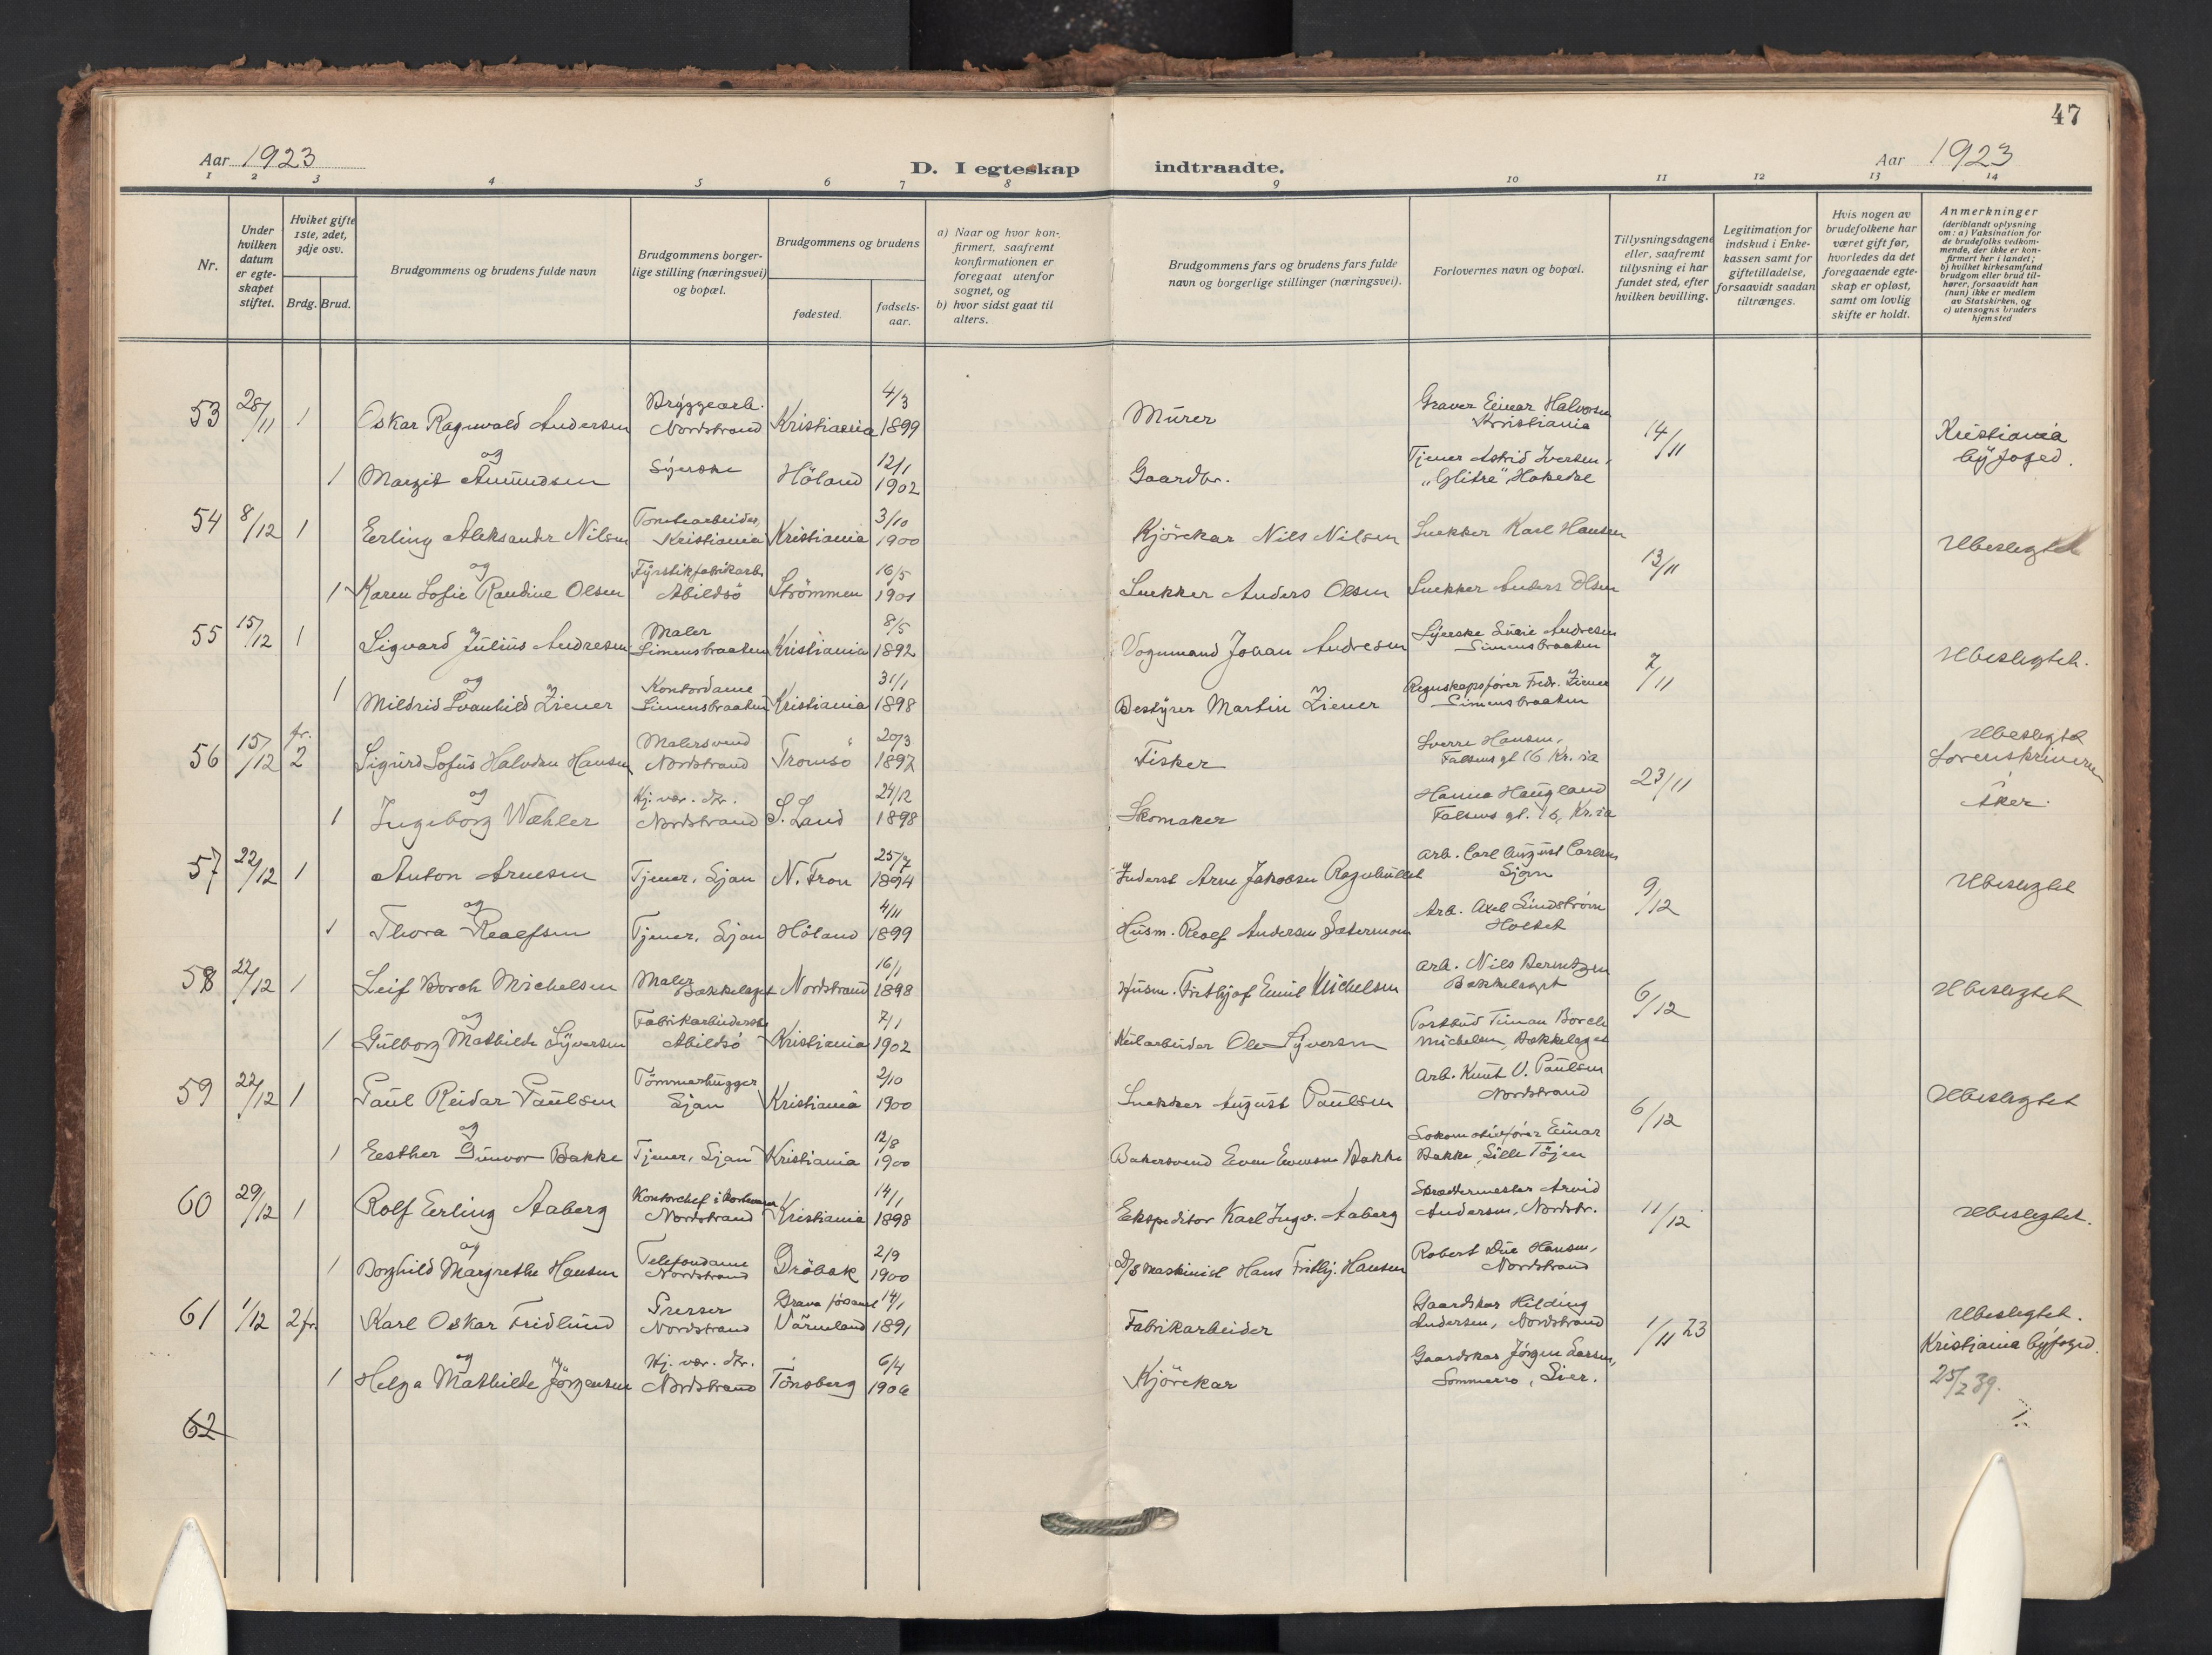 47
Aar 1923
D. I egteskap indtraadte.
Aar 1923
1 2 3 4 5 6 7 8 9 10 11 12 13 14
Nr.
Under hvilken datum er egte-skapet stiftet.
Hviket gifte 1ste, 2det, 3dje osv.
Brdg. Brud.
Brudgommens og brudens fulde navn
Brudgommens borger-lige stilling (næringsvei) og bopæl.
Brudgommens og brudens
fødested.
fødsels-aar.
a) Naar og hvor kon-firmert, saafremt konfirmationen er foregaat utenfor sognet, og
b) hvor sidst gaat til alters.
Brudgommens fars og brudens fars fulde navn og borgerlige stillinger (næringsvei).
Forlovernes navn og bopæl.
Tillysningsdagene eller, saafremt tillysning ei har fundet sted, efter hvilken bevilling.
Legitimation for indskud i Enke-kassen samt for giftetilladelse, forsaavidt saadan tiltrænges.
Hvis nogen av brudefolkene har været gift før, hvorledes da det foregaaende egte-skap er opløst, samt om lovlig skifte er holdt.
Anmerkninger
(deriblandt oplysning om: a) Vaksination for de brudefolks vedkom-mende, der ikke er kon-firmert her i landet; b) hvilket kirkesamfund brudgom eller brud til-hører, forsaavidt han (hun) ikke er medlem av Statskirken, og c) utensogns bruders hjemsted
53 28/11 1 Oskar Ragnvald Andersen Bryggearb. Nordstrand Kristiania 4/3 1899 Murer Graver Einar Halvorsen Kristiania 14/11 Kristiania byfoged.
og
1 Margit Amundsen Syerske Höland 12/1 1902 Gaardbr. Tjener Astrid Iversen, "Glitre" Hakedal
54 8/12 1 Erling Aleksander Nilsen Tomtearbeider, Kristiania Kristiania 3/10 1900 Kjörekar Nils Nilsen Snekker Karl Hansen 13/11 Ubeslegtet
og
1 Karen Sofie Randine Olsen Fyrstikfabrikarb. Abildsö Strömmen 16/5 1901 Snekker Anders Olsen Snekker Anders Olsen
55 15/12 1 Sigvard Julius Andresen Maler Simensbraaten Kristiania 8/5 1892 Vognmand Johan Andresen Syerske Andresen Simensbraaten 7/11 Ubeslegtet.
og
1 Mildrid Svanhild Ziener Kontordame Simensbraaten Kristiania 31/1 1898 Bestyrer Martin Ziener Regnskapsfører Fredr. Ziener Simensbraaten
56 15/12 fr. 2 Sigurd Sofus Halvdan Hansen Malersvend Nordstrand Tromsö 20/3 1897 Fisker Sverre Hansen, Falsens gt 16 Kr.ia 23/11 Ubeslegtet Sorenskriveren Aker.
og
1 Ingeborg Wæhler Hj. vær. dtr. Nordstrand S. Land 24/12 1898 Skomaker Hanna Haugland Falsens gt. 16, Kr.ia
57 22/12 1 Anton Arnesen Tjener, Ljan N. Fron 25/7 1894 Inderst Arne Jakobsen Arb. Carl August Carlsen Ljan 9/12 Ubeslegtet
og
1 Thora Realfsen Tjener, Ljan Höland 4/11 1899 Husm. Realf Andersen Arb. Axel Lindström Holtet
58 22/12 1 Leif Borch Michelsen Maler Bækkelaget Nordstrand 16/1 1898 Husm. Fritjof Emil Michelsen Arb. Nils Berntzen Bækkelaget 6/12 Ubeslegtet
og
1 Gulborg Mathilde Syversen Fabrikarbeiderske Abildsö Kristiania 7/1 1902 Kularbeider Ole Syversen Postbud Borch Michelsen, Bækkelaget
59 22/12 1 Paul Reidar Paulsen Tömmerhugger Ljan Kristiania 2/10 1900 Snekker August Paulsen Arb. Knut O. Paulsen Nordstrand 6/12 Ubeslegtet
og
1 Eesther Gunvor Bakke Tjener, Ljan Kristiania 12/8 1900 Bakersvend Even Evensen Bakke Lokomotivfører Einar Bakke, Lille Töien
60 29/12 1 Rolf Erling Aaberg Kontorchef i Nordstrand Kristiania 14/1 1898 Ekspeditor Karl Ingv. Aaberg Skræddermester Arvid Andersen, Nordstr. 11/12 Ubeslegtet.
og
1 Borghild Margrethe Hansen Telefondame Nordstrand Dröbak 2/9 1900 D/S Maskinist Hans Fritbj. Hansen Robert Due Hansen, Nordstrand
61 1/12 2 fr. Karl Oskar Fridlund Presser Nordstrand Grava församl Värmland 14/1 1891 Fabrikarbeider Gaardskar Hilding Andersen, Nordstrand 1/11 23 Ubeslegtet. Kristiania byfoged.
og
1 Helga Mathilde Jörgensen Hj. vær. dtr. Nordstrand Tönsberg 6/4 1906 Kjörekar Gaardskar Jörgen Larsen, Sommerro, Lier. 25/2 39.
62